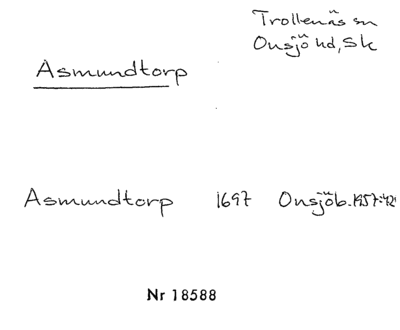 Trollenäs sn
Onsjö hd, Sk
Asmundtorp
Asmundtorp 1697 Onsjöb. 1957:42
Nr 18588